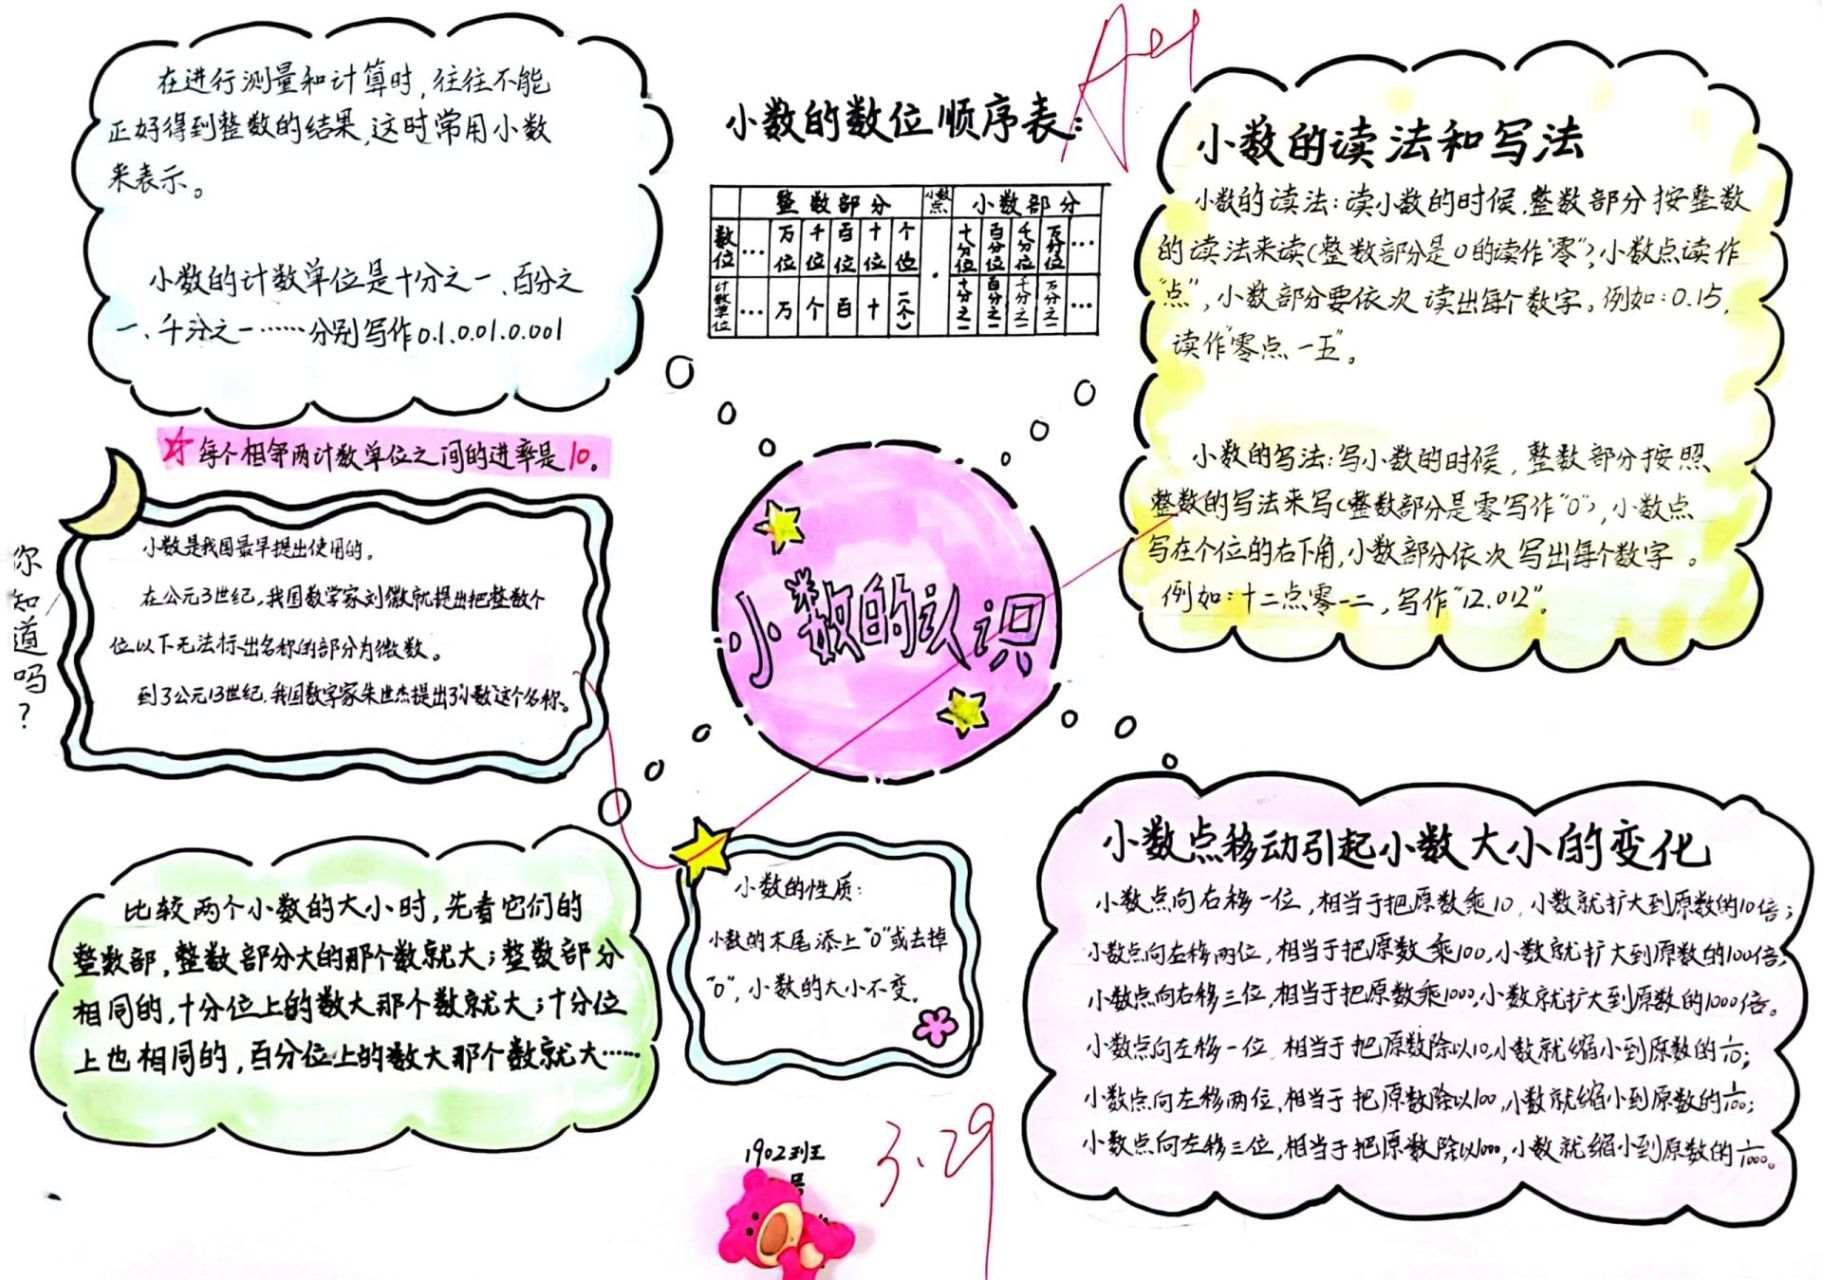 在进行测量和计算时,往往不能
正好得到整数的结果,这时常用小数
来表示。
小数的计数单位是十分之一、百分之
一、千分之一……分别写作0.1、0.01、0.001
☆每个相邻两计数单位之间的进率是10。
你知道吗?
小数是我国最早提出使用的。
在公元3世纪,我国数学家刘徽就提出把整数个
位以下无法标出名称的部分为微数。
到了公元13世纪,我国数字家朱世杰提出了小数这个名称。
比较两个小数的大小时,先看它们的
整数部,整数部分大的那个数就大;整数部分
相同的,十分位上的数大那个数就大;十分位
上也相同的,百分位上的数大那个数就大……
小数的数位顺序表:
整数部分 小数点 小数部分
数位 … 万位 千位 百位 十位 个位 · 十分位 百分位 千分位 万分位 …
计数单位 … 万 个 百 十 一(个) 十分之一 百分之一 千分之一 万分之一 …
小数的认识
小数的性质:
小数的末尾添上“0”或去掉
“0”,小数的大小不变。
1902班王
号
3.29
小数的读法和写法
小数的读法:读小数的时候,整数部分按整数
的读法来读(整数部分是0的读作“零”),小数点读作
“点”,小数部分要依次读出每个数字。例如:0.15,
读作“零点一五”。
小数的写法:写小数的时候,整数部分按照
整数的写法来写(整数部分是零写作“0”),小数点
写在个位的右下角,小数部分依次写出每个数字。
例如:十二点零一二,写作“12.012”。
小数点移动引起小数大小的变化
小数点向右移一位,相当于把原数乘10,小数就扩大到原数的10倍;
小数点向右移两位,相当于把原数乘100,小数就扩大到原数的100倍;
小数点向右移三位,相当于把原数乘1000,小数就扩大到原数的1000倍。
小数点向左移一位,相当于把原数除以10,小数就缩小到原数的1/10;
小数点向左移两位,相当于把原数除以100,小数就缩小到原数的1/100;
小数点向左移三位,相当于把原数除以1000,小数就缩小到原数的1/1000。